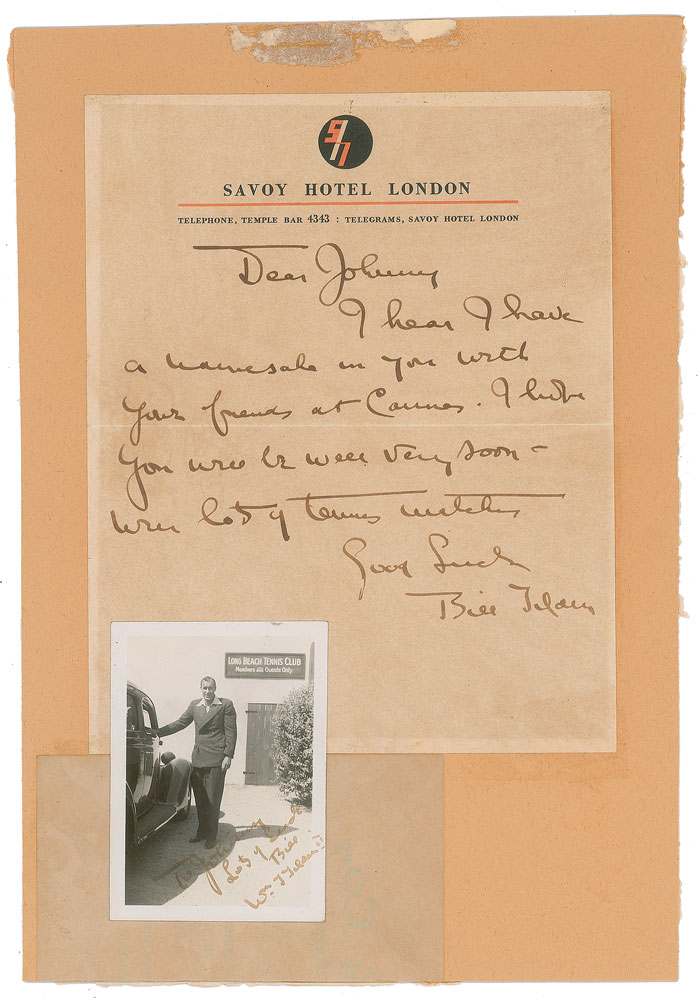 SAVOY HOTEL LONDON
TELEPHONE, TEMPLE BAR 4343 : TELEGRAMS, SAVOY HOTEL LONDON
Dear Johnny
I hear I have
a namesake in you with
your friends at Cannes. I hope
you will be well very soon -
win lots of tennis matches
Good Luck
Bill Tilden
LONG BEACH TENNIS CLUB
Members and Guests Only.
To Johnny
Lots of Luck
Bill
Wm T Tilden II